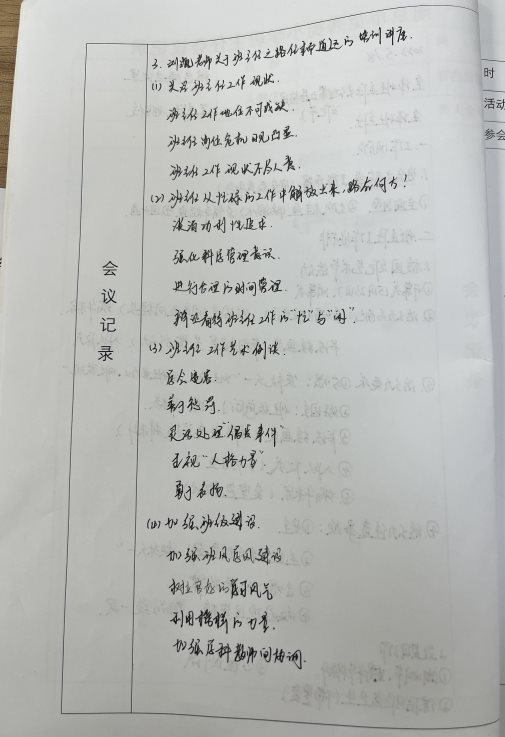 3. 刘凯老师关于班主任之路任重而道远的培训讲座.
(1) 关况班主任工作现状.
班主任工作地位不可或缺.
班主任岗位危机日见凸显.
班主任工作现状不尽人意.
(2) 班主任从忙碌的工作中解放出来,路在何方!
淡泊功利性追求.
强化科层管理意识.
进行合理的时间管理.
辩证看待班主任工作的"忙"与"闲".
(3) 班主任工作艺术例谈.
勇于惩罚.
灵活处理"偶发事件"
重视"人格力量".
勇于表扬.
(4) 加强班级建设.
加强班风学风建设
树立良好的风气
利用榜样的力量.
加强各科教师间协调.
会议记录
时
活动
参会